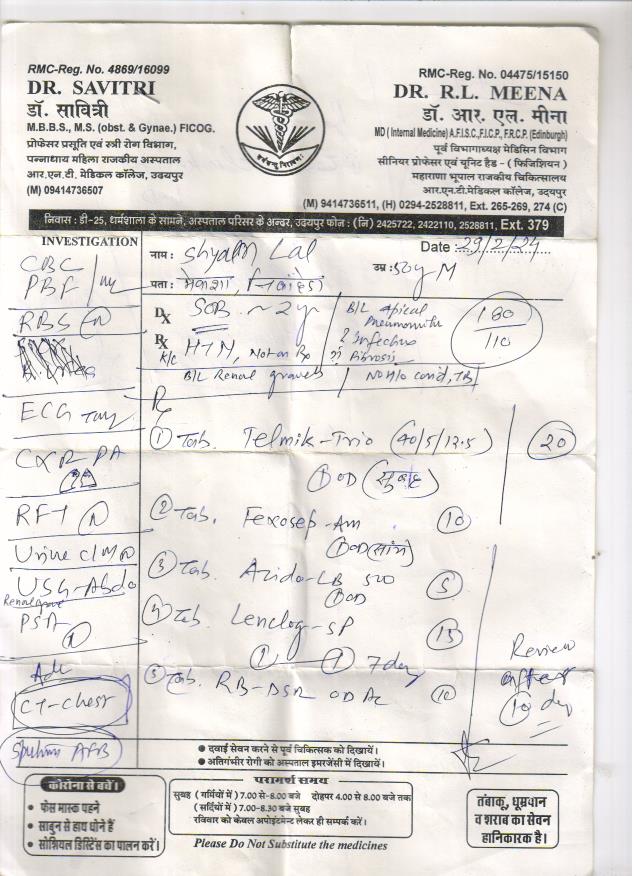 RMC-Reg. No. 4869/16099
DR. SAVITRI
डॉ. सावित्री
M.B.B.S., M.S. (obst. & Gynae.) FICOG.
प्रोफेसर प्रसूति एवं स्त्री रोग विभाग,
पन्नाधाय महिला राजकीय अस्पताल
आर.एन.टी. मेडिकल कॉलेज, उदयपुर
(M) 09414736507
RMC-Reg. No. 04475/15150
DR. R.L. MEENA
डॉ. आर. एल. मीना
MD ( Internal Medicine) A.F.I.S.C.,F.I.C.P., F.R.C.P. (Edinburgh)
पूर्व विभागाध्यक्ष मेडिसिन विभाग
सीनियर प्रोफेसर एवं यूनिट हैड - ( फिजिशियन )
महाराणा भूपाल राजकीय चिकित्सालय
आर.एन.टी.मेडिकल कॉलेज, उदयपुर
(M) 9414736511, (H) 0294-2528811, Ext. 265-269, 274 (C)
निवास : डी-25, धर्मशाला के सामने, अस्पताल परिसर के अन्दर, उदयपुर फोन : (नि) 2425722, 2422110, 2528811, Ext. 379
INVESTIGATION
CBC
PBF
RBS (N)
ECG
CXR-PA
RFT (N)
Urine C/M (N)
USG-Abdo
PSA
(N)
Adv
CT-Chest
Sputum AFB
नाम : Shyam Lal
Date : 29/2/24
उम्र : 50y M
पता :
Dx SOB ~ 2 yr
B/L apical
Pneumonitis
? infectious
Fibrosis
180/110
Rx
K/c HTN, Not on Rx
B/L Renal gravels
No h/o covid, TB
Rx
① Tab. Telmik-Trio (40/5/12.5) 20
① OD (सुबह)
② Tab. Fexosep-Am 10
① OD (सांय)
③ Tab. Azido-LB 500 5
① OD
④ Tab. Lenclog-SP 15
7 day
⑤ Tab. RB-DSR OD AC 10
Review
after
10 day
● दवाई सेवन करने से पूर्व चिकित्सक को दिखायें।
● अतिगंभीर रोगी को अस्पताल इमरजेंसी में दिखायें।
कोरोना से बचें।
• फेस मास्क पहने
• साबुन से हाथ धोने हैं
• सोशियल डिस्टेंस का पालन करें।
परामर्श समय
सुबह ( गर्मियों में ) 7.00 से-8.00 बजे दोहपर 4.00 से 8.00 बजे तक
( सर्दियों में ) 7.00-8.30 बजे सुबह
रविवार को केवल अपोइंटमेन्ट लेकर ही सम्पर्क करें।
Please Do Not Substitute the medicines
तंबाकू, धूम्रपान
व शराब का सेवन
हानिकारक है।